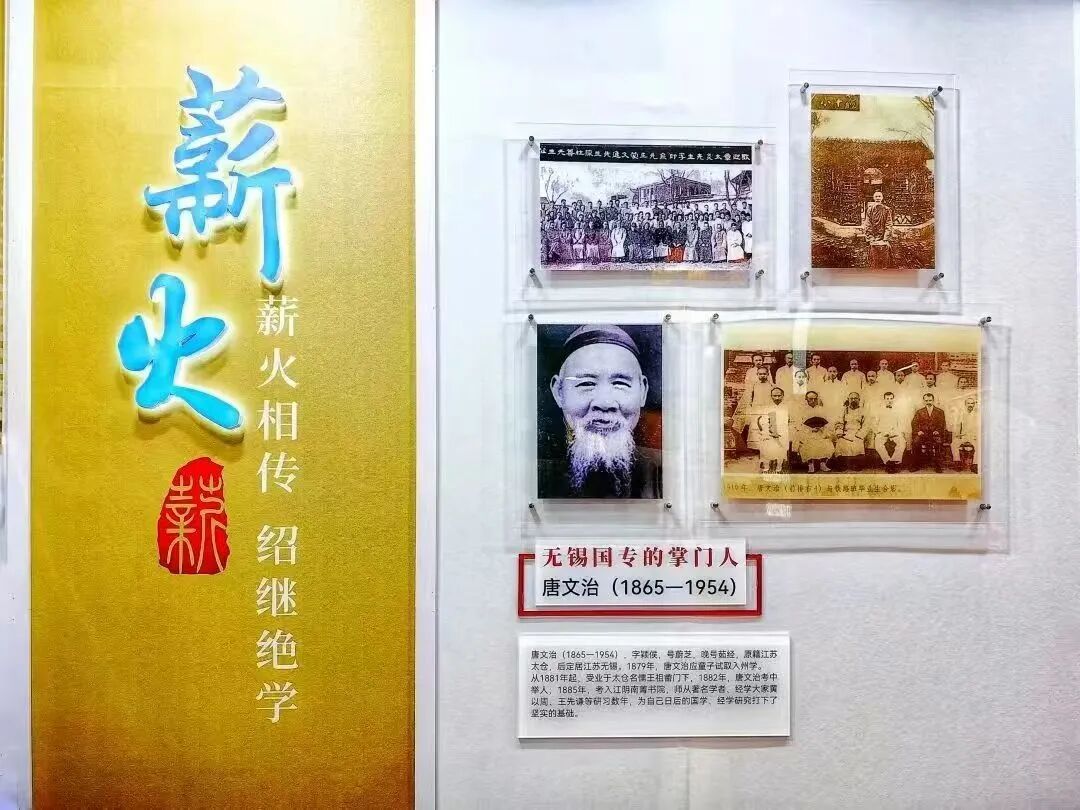 薪火
薪火相传 绍继绝学
薪
1910年，唐文治（前排右4）与铁路班毕业生合影。
无锡国专的掌门人
唐文治（1865—1954）
唐文治（1865—1954），字颖侯，号蔚芝，晚号茹经，原籍江苏
太仓，后定居江苏无锡。1879年，唐文治应童子试取入州学。
从1881年起，受业于太仓名儒王祖畬门下，1882年，唐文治考中
举人，1885年，考入江阴南菁书院，师从著名学者、经学大家黄
以周、王先谦等研习数年，为自己日后的国学、经学研究打下了
坚实的基础。